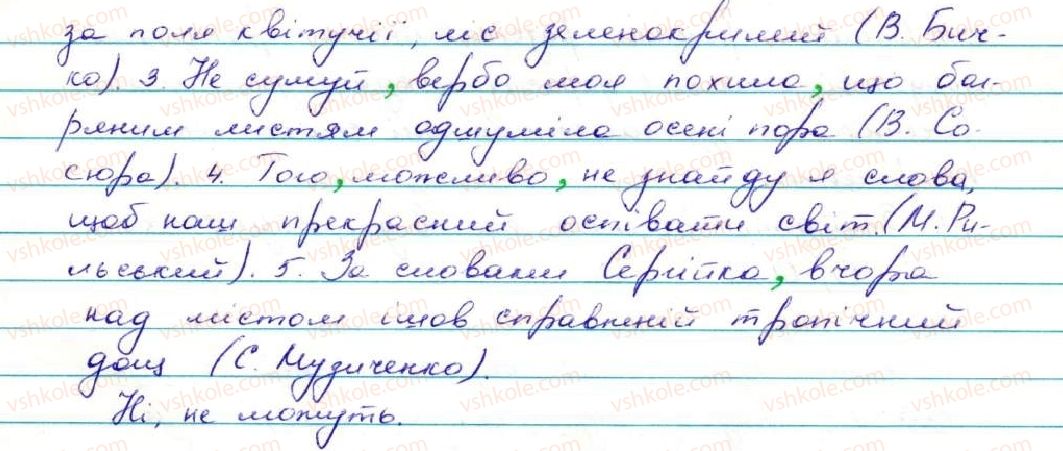 за поля квітучії, ліс зеленокрилий (В. Бич-
ко). 3. Не сумуй, вербо моя похила, що баг-
ряним листям одшуміла осені пора (В. Со-
сюра). 4. Того, можливо, не знайду я слова,
щоб наш прекрасний оспівати світ. (М. Ри-
льський). 5. За словами Сергійка, вчора
над містом ішов справжній тропічний
дощ (С. Мудиченко).
Ні, не можуть.